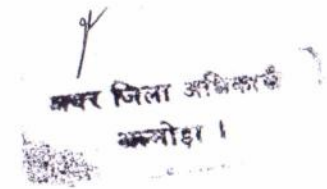 अपर जिला अधिकारी
अल्मोड़ा ।